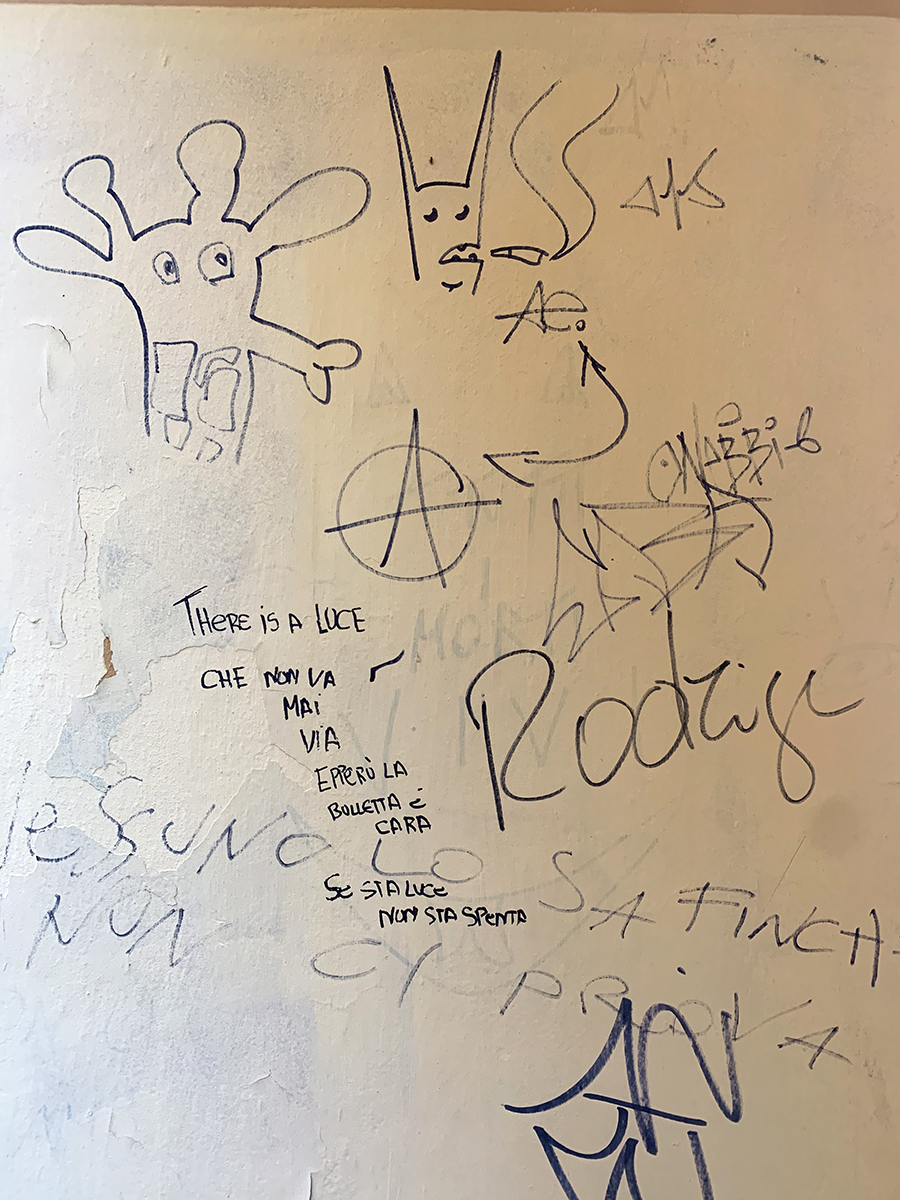 Ae.
A
THERE iS A LUCE
CHE NON VA
MAi
ViA
EPPERÒ LA
BOLLETTA È
CARA
Se STA LUCE
NUN STA SPeNTA
RODRige
NeSSUNO LO SA FINCH
NON CY PROVA